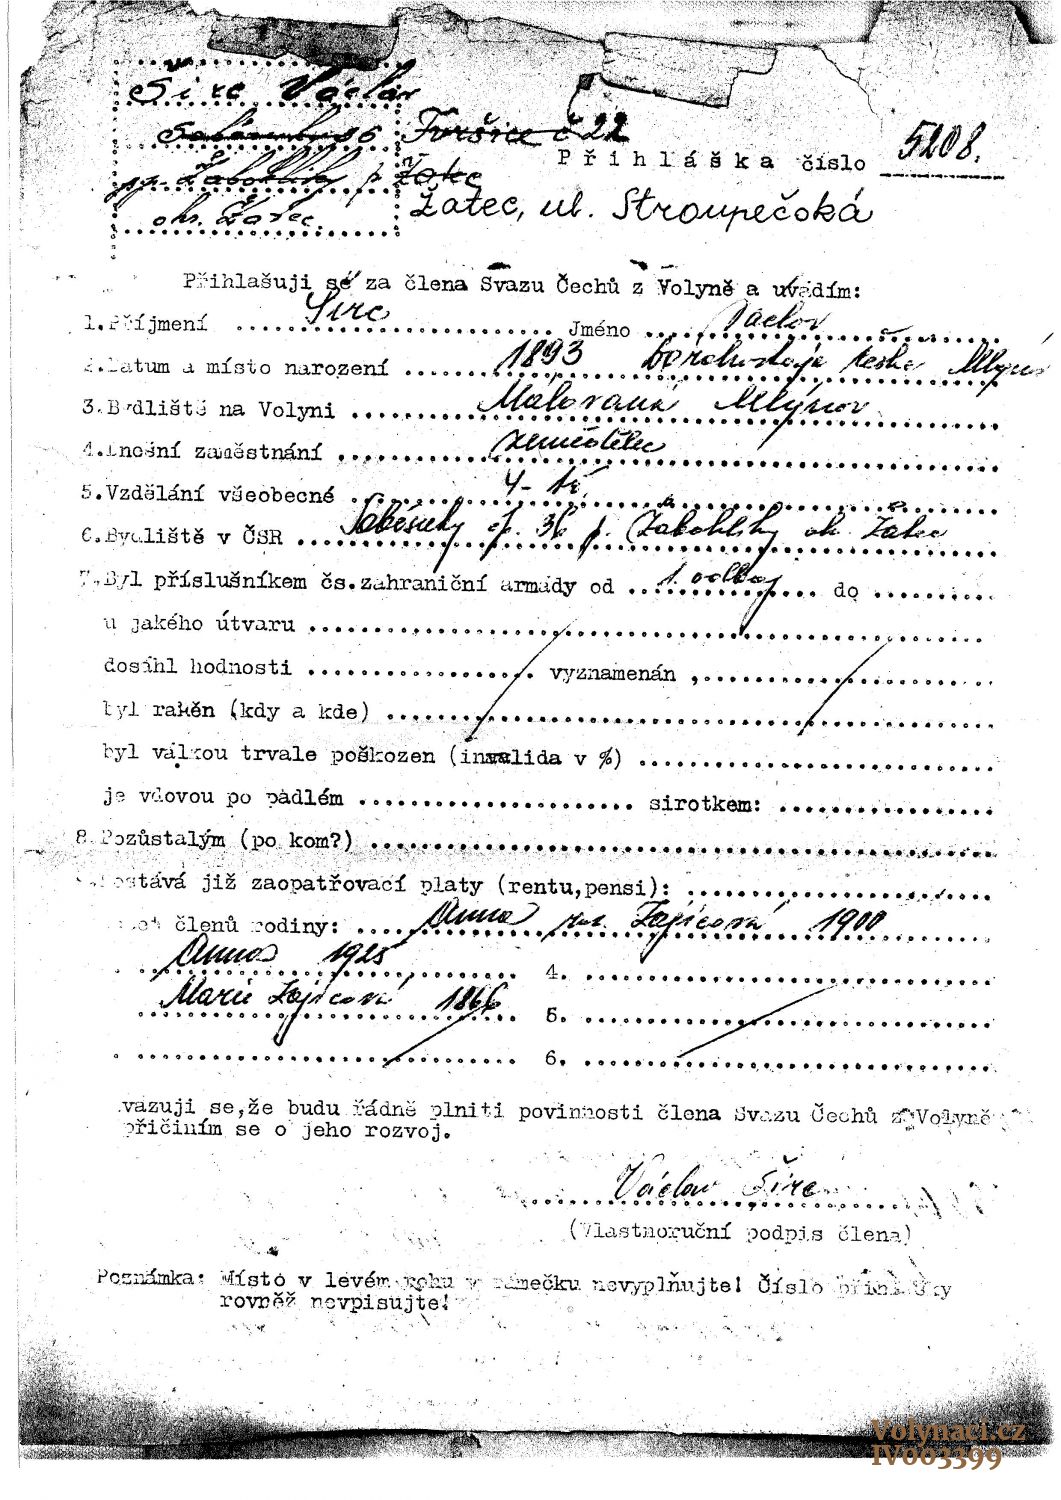 Širc Václav
6 Tvršice č 22
Přihláška číslo 5208.
pp. Žabokliky p. Žatec
okr. Žatec.
Žatec, ul. Stroupečská
Přihlašuji se za člena Svazu Čechů z Volyně a uvádím:
1. Příjmení Širc Jméno Václav
2. Datum a místo narození 1893 česká Mlynov
3. Bydliště na Volyni Malovaná Mlýnov
4. zaměstnání zemědělec
5. Vzdělání všeobecné 4- tř.
6. Bydliště v ČSR čp. 36 p. Žabokliky ok. Žatec
7. Byl příslušníkem čs.zahraniční armády od 1. odboj do
u jakého útvaru
dosáhl hodnosti vyznamenán
byl raněn (kdy a kde)
byl válkou trvale poškozen (invalida v %)
je vdovou po padlém sirotkem:
8. Pozůstalým (po kom?)
Dostává již zaopatřovací platy (rentu,pensi):
členů rodiny: Anna roz. Zajícová 1900
Anna 1925 4.
Marie Zajícová 1866 5.
6.
vazuji se,že budu řádně plniti povinnosti člena Svazu Čechů z Volyně
přičiním se o jeho rozvoj.
Václav Širc
(Vlastnoruční podpis člena)
Poznámka: Místo v levém rohu v rámečku nevyplňujte! Číslo přihlášky
rovněž nevpisujte!
Volynaci.cz
IV003399